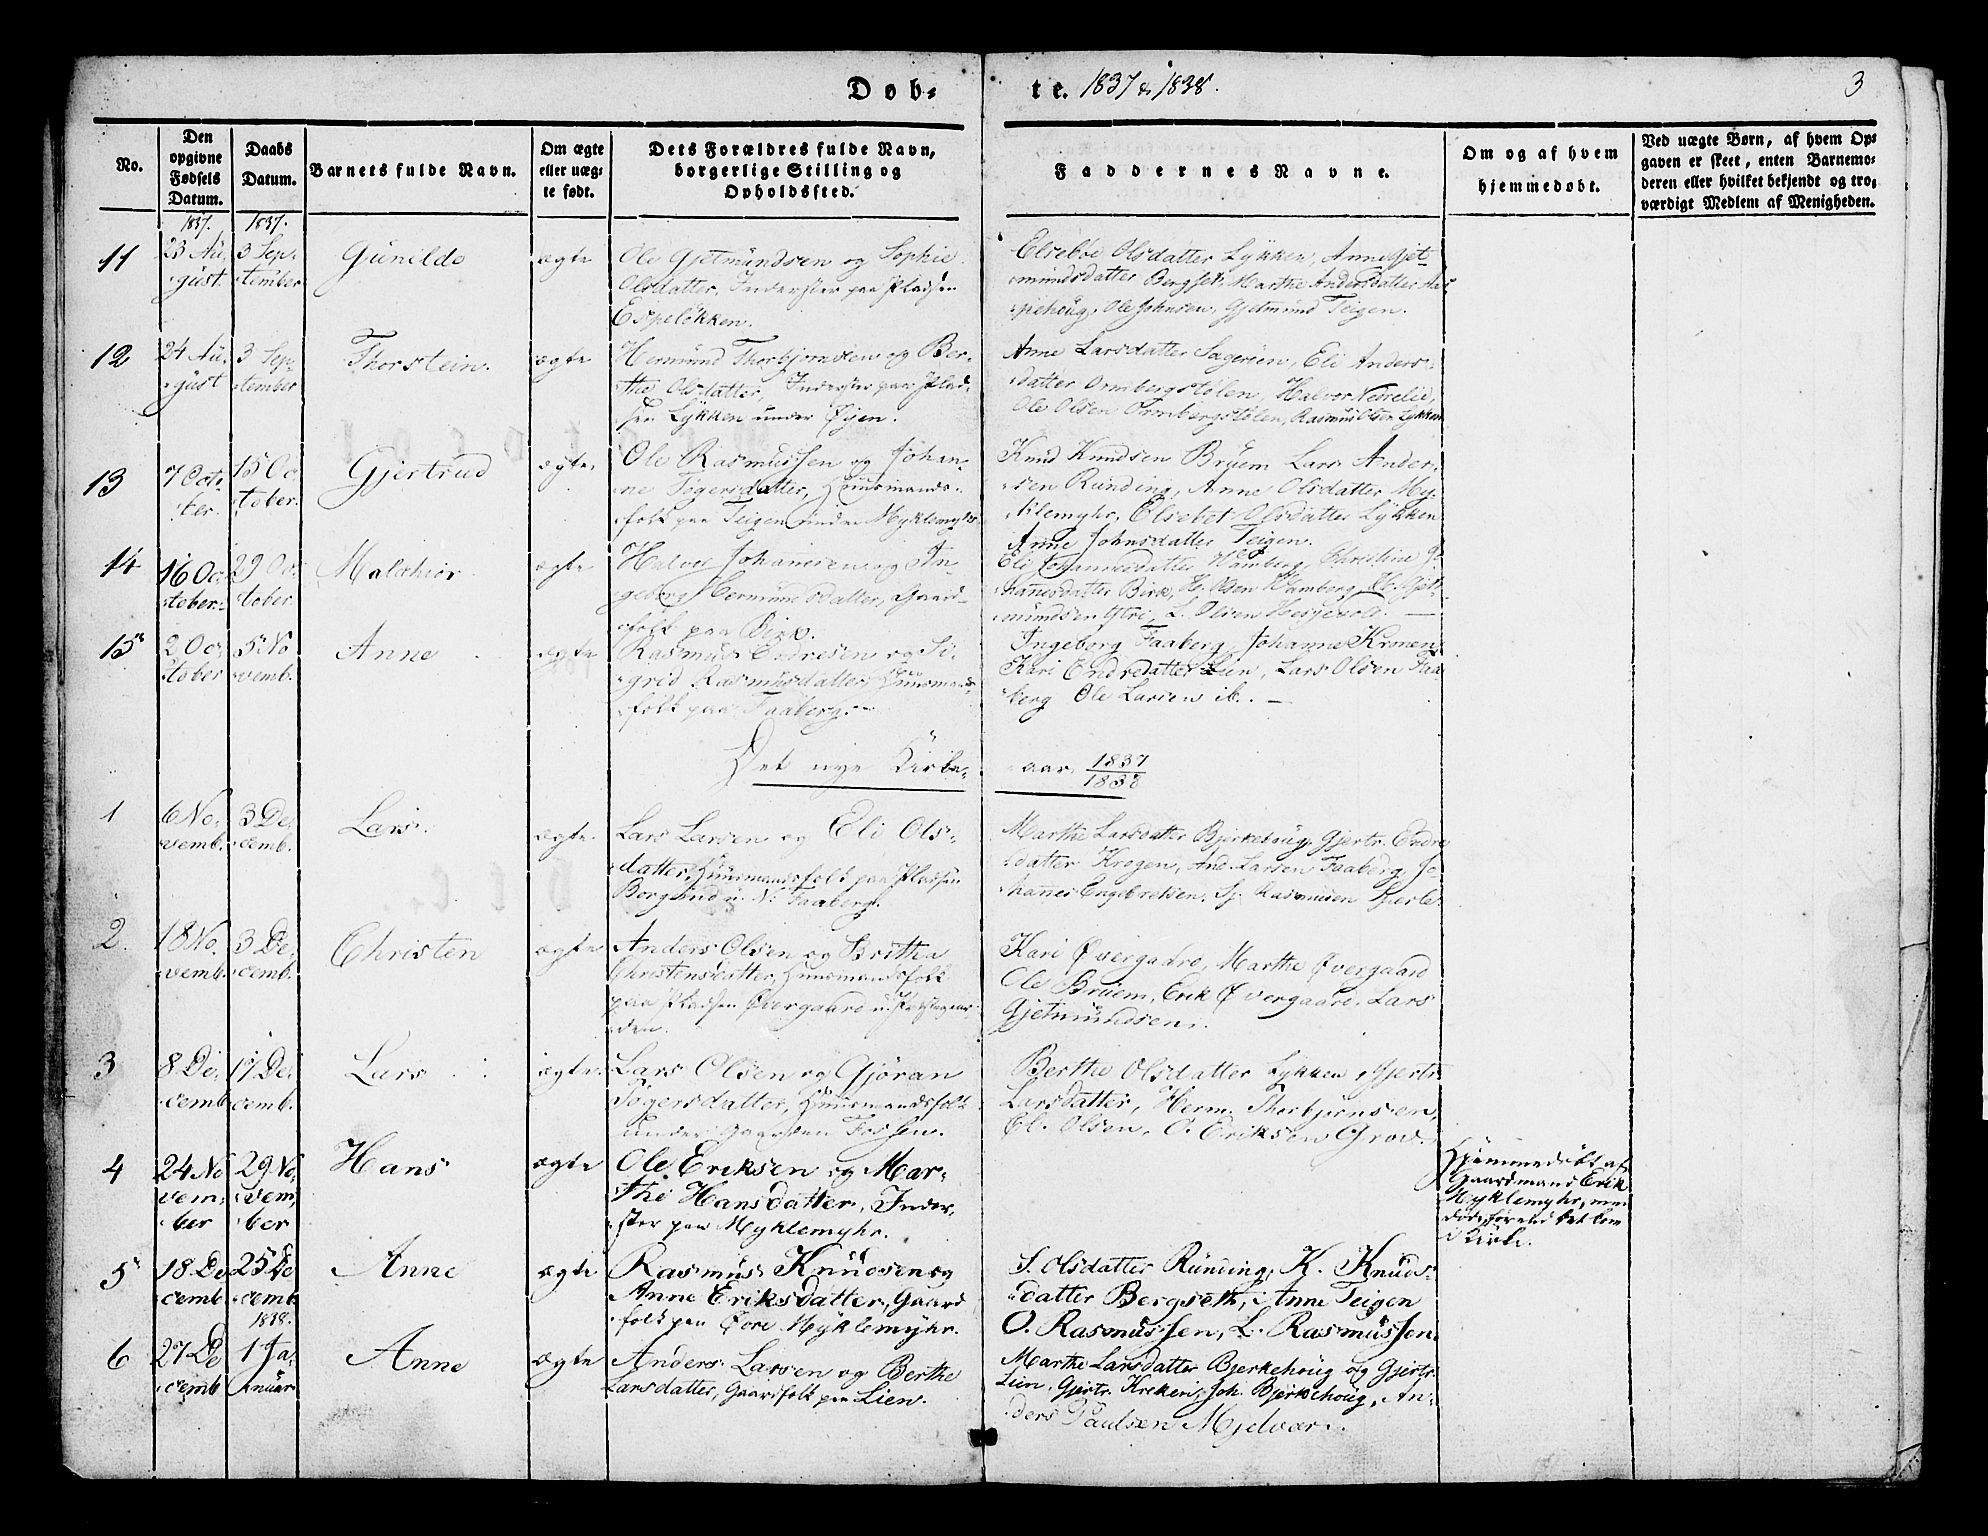 Døb-
te. 1837 & 1838.
3
No.
Den opgivne Fødsels Datum.
Daabs Datum.
Barnets fulde Navn.
Om ægte eller uæg-te født.
Dets Forældres fulde Navn, borgerlige Stilling og Opholdssted.
Faddernes Navne.
Om og af hvem hjemmedøbt.
Ved uægte Børn, af hvem Op-
gaven er skeet, enten Barnemo-
deren eller hvilket bekjendt og tro-
værdigt Medlem af Menigheden.
1837. 1837.
11
23 Au-
gust.
3 Sep-
tember
Gunilde
ægte
Ole Gjetmundsen og Sophie
Olsdatter, Inderster paa Pladsen
Espeløkken.
Elsebøe Olsdatter Lykken, Anne Gjet-
mundsdatter Bergset, Marthe Andersdatter As-
pehoug, Ole Johnsen, Gjetmund Teigen.
12
24 Au-
gust
3 Sep-
tember
Thorstein.
ægte
Hermund Thorbjørnsen og Ber-
the Olsdatter, Inderster paa Plad-
sen Lykken under Øyen.
Anne Larsdatter Sageøien, Eli Anders-
datter Ormbergstølen, Halvor Nedrelid,
Ole Olsen Ormbergstølen, Rasmus Olsen Lykken
13
7 Octo-
ber.
15 Oc-
tober.
Gjertrud
ægte.
Ole Rasmussen og Johan-
ne Tøgersdatter, Huusmands-
folk paa Teigen under Myklemyhr
Knud Knudsen Bruem Lars Ander-
sen Runding, Anne Olsdatter My-
klemyhr, Elsebet Olsdatter Lykken
Anne Johnsdatter Teigen.
14
16 Oc-
tober.
29 Oc-
tober.
Malchior
ægte
Halvor Johannesen og In-
geborg Hermundsdatter, Gaard-
folk paa Birk.
Eli Johannesdatter Wamberg, Christine Jo-
hannesdatter Birk, H. Olsen Wamberg, Gjet-
mundsen Ytri, L. Olsen
15
2 Oc-
tober
5 No
vemb.
Anne
ægte
Rasmus Endresen og Si-
grid Rasmusdatter, Huusmands-
folk paa Faaberg.
Ingeborg Faaberg, Johanne Kronen,
Kari Endredatter Lien, Lars Olsen Faa
berg Ole Larsen ib.
Det nye Kirke-
aar 1837
1838
1
6 No-
vemb.
3 De-
cemb.
Lars.
ægte.
Lars Larsen og Eli Ols-
datter, Huusmandsfolk paa Pladsen
Borgund u. N. Faaberg.
Marthe Larsdatter Bjerkehoug, Gjertr. Endre
datter Krogen, And. Larsen Faaberg, Jo-
hannes Engebretsen, Sj. Rasmusen
2.
18 No.
vemb.
3 De-
cemb.
Christen
ægte
Anders Olsen og Britha
Christensdatter, Huusmandsfolk
paa Pladsen Øvergaard u. Præstegaar-
den.
Kari Øvergaard, Marthe Øvergaard
Ole Bruem, Erik Øvergaard, Lars
Gjetmundsen.
3
8 De-
cemb
17 De-
cemb.
Lars
ægte.
Lars Olsen og Gjøran
Tøgersdatter, Huusmandsfolk
under Gaarden Fossen.
Berthe Olsdatter Lykken, Gjertr.
Larsdatter, Herm. Thorbjørnsen,
El. Olsen, O. Eriksen Grov.
4
24 No
vem-
ber
29 No
vem-
ber
Hans
ægte
Ole Eriksen og Mar-
the Hansdatter, Inder-
ster paa Myklemyhr.
Hjemmedøbt af
Gaardmand Erik
Myklemyhr, men
døde førend det kom
i Kirke.
5
18 De
cemb
25 De
cemb.
Anne
ægte
Rasmus Knudsen og
Anne Eriksdatter, Gaard
folk paa Øvre Myklemyhr.
S. Olsdatter Runding, K. Knuds-
datter Bergseth, Anne Teigen
O. Rasmussen, L. Rasmussen.
1838.
6
27 De
cemb
1 Ja-
nuar
Anne
ægte
Anders Larsen og Berthe
Larsdatter, Gaardfolk paa Lien.
Marthe Larsdatter Bjerkehoug og Gjertr.
Lien, Gjertr. Kreken, Joh. Bjerkehoug, An-
ders Paulsen Mjelvær.